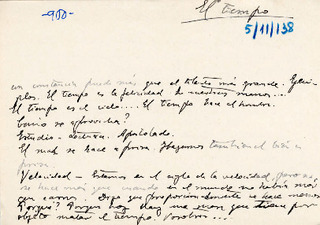 -900-
El tiempo
5/11/138
con constancia puede más que el talento más grande. Ejem-
plos. El tiempo es la felicidad de nuestras manos...
El tiempo es el cielo.... El tiempo hace el hombre.
Como se aprovecha?
Estudio - Lectura. Apostolado.
El mal se hace a prisa. Hagamos también el bien a
prisa.
Velocidad - Estamos en el siglo de la velocidad, pero no
se hace más que cuando en el mundo no había más
que carros. Diga que proporcionalmente se hace menos
Porqué? Porque hoy hay una masa que tiene por
objeto matar el tiempo. Nosotros...